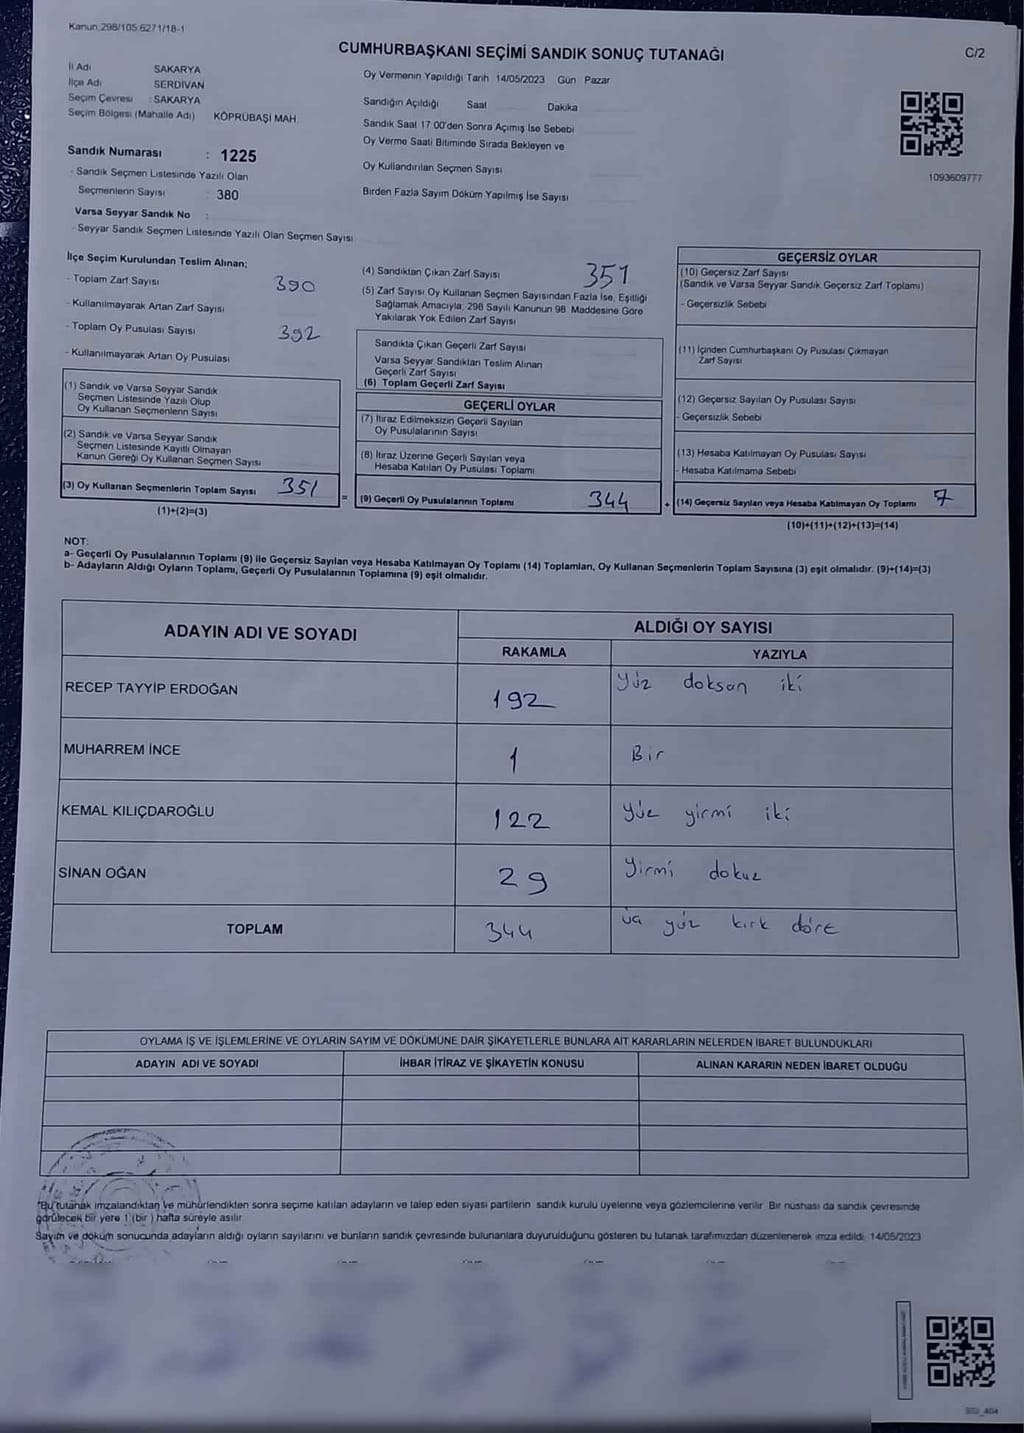 Kanun 298/105 6271/18-1
CUMHURBAŞKANI SEÇİMİ SANDIK SONUÇ TUTANAĞI
C/2
İl Adı SAKARYA
İlçe Adı SERDİVAN
Seçim Çevresi : SAKARYA
Seçim Bölgesi (Mahalle Adı) KÖPRÜBAŞI MAH
Oy Vermenin Yapıldığı Tarih 14/05/2023 Gün Pazar
Sandığın Açıldığı Saat Dakika
Sandık Saat 17 00'den Sonra Açımış İse Sebebi
Oy Verme Saati Bitiminde Sırada Bekleyen ve
Oy Kullandırılan Seçmen Sayısı
Birden Fazla Sayım Döküm Yapılmış İse Sayısı
1093609777
Sandık Numarası : 1225
- Sandık Seçmen Listesinde Yazılı Olan
Seçmenlerin Sayısı 380
Varsa Seyyar Sandık No :
- Seyyar Sandık Seçmen Listesinde Yazılı Olan Seçmen Sayısı
İlçe Seçim Kurulundan Teslim Alınan;
- Toplam Zarf Sayısı 390
- Kullanılmayarak Artan Zarf Sayısı
- Toplam Oy Pusulası Sayısı 392
- Kullanılmayarak Artan Oy Pusulası
(1) Sandık ve Varsa Seyyar Sandık
Seçmen Listesinde Yazılı Olup
Oy Kullanan Seçmenlerin Sayısı
(2) Sandık ve Varsa Seyyar Sandık
Seçmen Listesinde Kayıtlı Olmayan
Kanun Gereği Oy Kullanan Seçmen Sayısı
(3) Oy Kullanan Seçmenlerin Toplam Sayısı 351
(1)+(2)=(3)
=
(4) Sandıktan Çıkan Zarf Sayısı 351
(5) Zarf Sayısı Oy Kullanan Seçmen Sayısından Fazla İse, Eşitliği
Sağlamak Amacıyla, 298 Sayılı Kanunun 98. Maddesine Göre
Yakılarak Yok Edilen Zarf Sayısı
Sandıkta Çıkan Geçerli Zarf Sayısı
Varsa Seyyar Sandıktan Teslim Alınan
Geçerli Zarf Sayısı
(6) Toplam Geçerli Zarf Sayısı
GEÇERLİ OYLAR
(7) İtiraz Edilmeksizin Geçerli Sayılan
Oy Pusulalarının Sayısı
(8) İtiraz Üzerine Geçerli Sayılan veya
Hesaba Katılan Oy Pusulası Toplamı
(9) Geçerli Oy Pusulalarının Toplamı 344
+
GEÇERSİZ OYLAR
(10) Geçersiz Zarf Sayısı
(Sandık ve Varsa Seyyar Sandık Geçersiz Zarf Toplamı)
- Geçersizlik Sebebi
(11) İçinden Cumhurbaşkanı Oy Pusulası Çıkmayan
Zarf Sayısı
(12) Geçersiz Sayılan Oy Pusulası Sayısı
- Geçersizlik Sebebi
(13) Hesaba Katılmayan Oy Pusulası Sayısı
- Hesaba Katılmama Sebebi
(14) Geçersiz Sayılan veya Hesaba Katılmayan Oy Toplamı 7
(10)+(11)+(12)+(13)=(14)
NOT:
a- Geçerli Oy Pusulalarının Toplamı (9) ile Geçersiz Sayılan veya Hesaba Katılmayan Oy Toplamı (14) Toplamları, Oy Kullanan Seçmenlerin Toplam Sayısına (3) eşit olmalıdır. (9)+(14)=(3)
b- Adayların Aldığı Oyların Toplamı, Geçerli Oy Pusulalarının Toplamına (9) eşit olmalıdır.
ADAYIN ADI VE SOYADI
ALDIĞI OY SAYISI
RAKAMLA YAZIYLA
RECEP TAYYİP ERDOĞAN 192 yüz doksan iki
MUHARREM İNCE 1 Bir
KEMAL KILIÇDAROĞLU 122 yüz yirmi iki
SİNAN OĞAN 29 yirmi dokuz
TOPLAM 344 yüz kırk
OYLAMA İŞ VE İŞLEMLERİNE VE OYLARIN SAYIM VE DÖKÜMÜNE DAİR ŞİKAYETLERLE BUNLARA AİT KARARLARIN NELERDEN İBARET BULUNDUKLARI
ADAYIN ADI VE SOYADI İHBAR İTİRAZ VE ŞİKAYETİN KONUSU ALINAN KARARIN NEDEN İBARET OLDUĞU
*Bu tutanak imzalandıktan ve mühürlendikten sonra seçime katılan adayların ve talep eden siyasi partilerin sandık kurulu üyelerine veya gözlemcilerine verilir. Bir nüshası da sandık çevresinde
görülecek bir yere 1 (bir) hafta süreyle asılır.
Sayım ve döküm sonucunda adayların aldığı oyların sayılarını ve bunların sandık çevresinde bulunanlara duyurulduğunu gösteren bu tutanak tarafımızdan düzenlenerek imza edildi. 14/05/2023